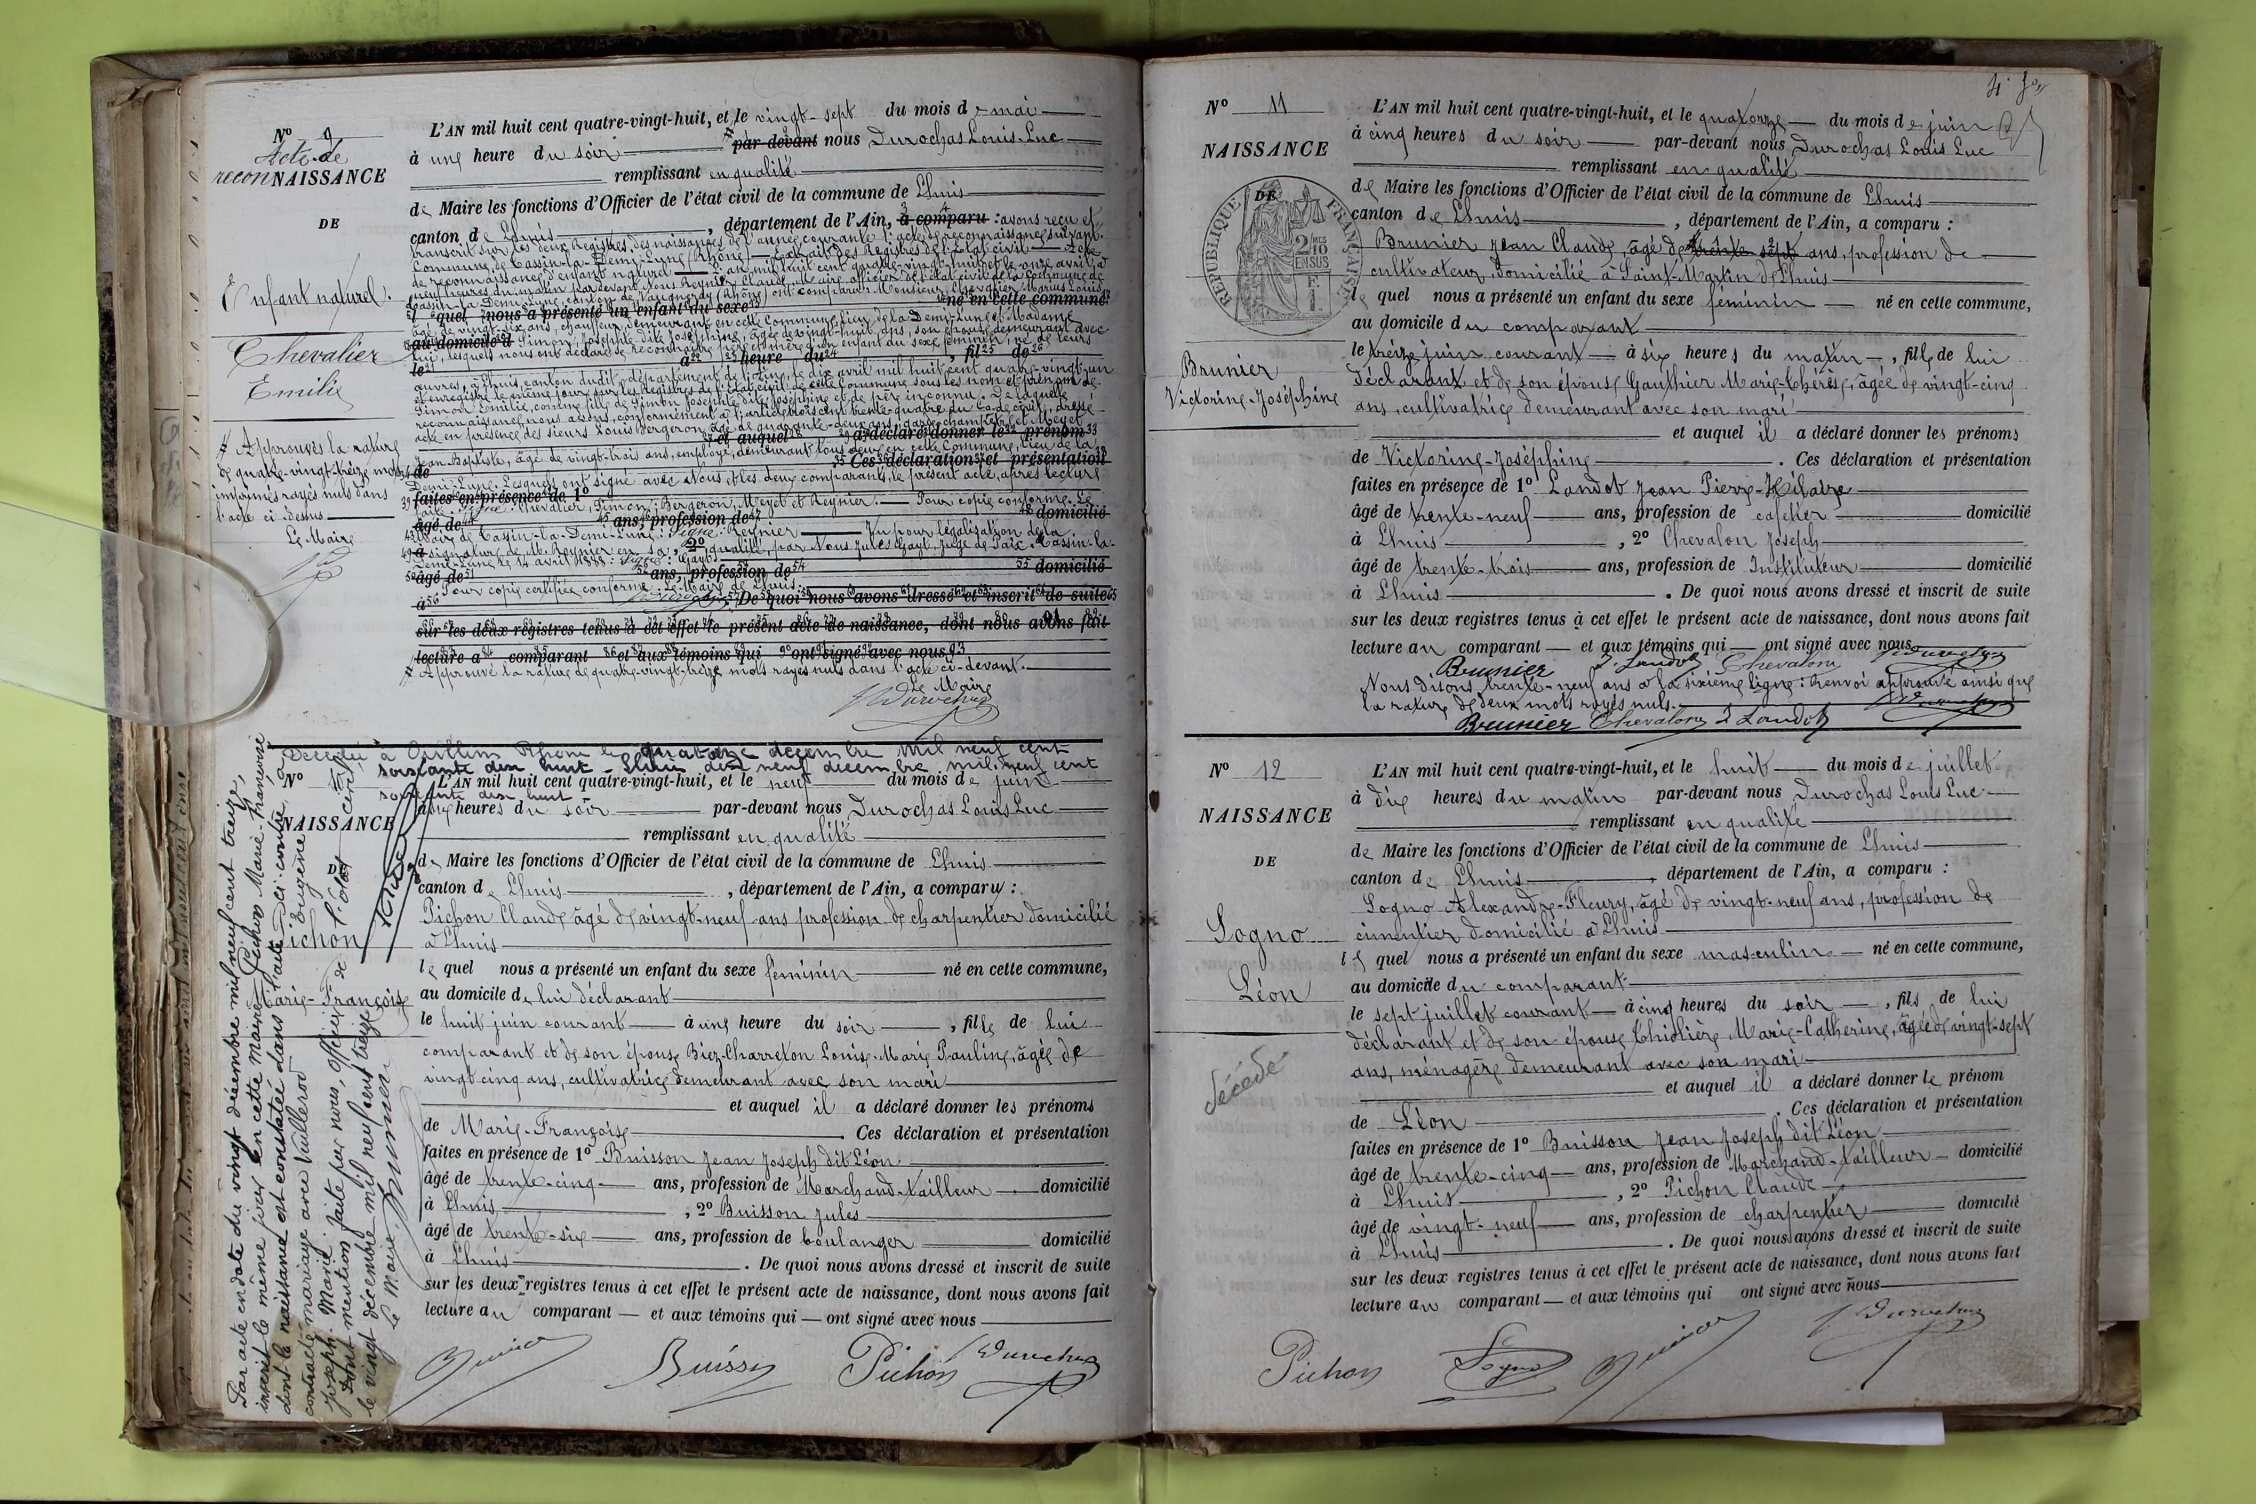 Nº 9
Acte de
reconNAISSANCE
DE
Enfant naturel.
Chevalier
Emilie
# Approuvés la rature
de quatre-vingt-treize mots
imprimés rayés nuls dans
l'acte ci-dessus
Le Maire
L'AN mil huit cent quatre-vingt-huit, et le vingt-sept du mois de mai
à une heure du soir # par-devant nous Durochas Louis-Luc
remplissant en qualité
de Maire les fonctions d'Officier de l'état civil de la commune de Lhuis
canton de Lhuis, département de l'Ain, a comparu : avons reçu et
transcrit sur les deux Registres des naissances de l'année courante l'acte de reconnaissance suivant.
Commune de Tassin-la-Demi-Lune (Rhône) — Extrait des Registres de l'Etat civil — Acte
de reconnaissance d'enfant naturel — L'an mil huit cent quatre-vingt-huit et le onze avril, à
neuf heures du matin par devant Nous Reynier Claude, Maire, officier de l'état civil de la commune de
Tassin-la-Demi-Lune, canton de Vaugneray (Rhône) ont comparu : Monsieur Chevalier Marius Louis,
l quel nous a présenté un enfant du sexe né en cette commune,
âgé de vingt-six ans, chauffeur, demeurant en cette Commune, lieu de la Demi-Lune et Madame
au domicile d Simon, Josephte dite Joséphine, âgée de vingt-huit ans, son épouse demeurant avec
lui, lesquels nous ont déclaré se reconnaître père et mère d'un enfant du sexe féminin, né de leurs
le à heure du , fil de
œuvres, à Lhuis, canton dudit, département de l'Ain, le dix avril mil huit cent quatre-vingt-un
et enregistré le même jour sur les Registres de l'Etat civil de cette Commune sous les nom et prénom de
Simon Emilie, comme fille de Simon Josephte dite Joséphine et de père inconnu. De laquelle
reconnaissance, nous avons, conformément à l'article trois cent trente-quatre du Code civil, dressé
acte en présence des sieurs Louis Bergeron, âgé de quarante-deux ans, garde champêtre et Meyet
et auquel a déclaré donner le prénom
Jean-Baptiste, âgé de vingt-trois ans, employé, demeurant tous deux en cette Commune, lieu de la
de Ces déclaration et présentation
Demi-Lune. Lesquels ont signé avec Nous et les deux comparants, le présent acte, après lecture
faites en présence de 1º
faite. Signé : Chevalier, Simon, Bergeron, Meyet et Reynier. — Pour copie conforme. Le
âgé de ans, profession de domicilié
Maire de Tassin-la-Demi-Lune. Signé : Reynier — Vu pour légalisation de la
à , 2º
signature de M. Reynier en sa qualité, par Nous Jules Gayt, Juge de Paix. Tassin-la-
Demi-Lune le 14 avril 1888 : Signé : Gayt
âgé de ans, profession de domicilié
Pour copie certifiée conforme. Le Maire de Lhuis.
à De quoi nous avons dressé et inscrit de suite
sur les deux registres tenus à cet effet le présent acte de naissance, dont nous avons fait
lecture a comparant et aux témoins qui ont signé avec nous
# Approuvé la rature de quatre-vingt-treize mots rayés nuls dans l'acte ci-devant.
Le Maire
Décédée à Oullins Rhône le quatorze décembre mil neuf cent
soixante dix huit - Lhuis dix neuf décembre mil neuf cent
soixante dix huit
Nº 10
NAISSANCE
DE
Pichon
Marie-Françoise
Par acte en date du vingt décembre mil neuf cent treize,
inscrit le même jour en cette mairie, Pichon Marie-Françoise
dont la naissance est constatée dans l'acte ci-contre, a
contracté mariage avec Vuillerod Eugène
Joseph-Marie.
Dont mention faite par nous, officier de l'état civil
le vingt décembre mil neuf cent treize
Le Maire. Brunier
L'AN mil huit cent quatre-vingt-huit, et le neuf du mois de juin
à six heures du soir par-devant nous Durochas Louis Luc
remplissant en qualité
de Maire les fonctions d'Officier de l'état civil de la commune de Lhuis
canton de Lhuis, département de l'Ain, a comparu :
Pichon Claude, âgé de vingt-neuf ans profession de charpentier domicilié
à Lhuis
le quel nous a présenté un enfant du sexe féminin né en cette commune,
au domicile de lui déclarant
le huit juin courant à une heure du soir, fille de lui
comparant et de son épouse Biez-Charreton Louise-Marie Pauline, âgée de
vingt cinq ans, cultivatrice demeurant avec son mari
et auquel il a déclaré donner les prénoms
de Marie-Françoise. Ces déclaration et présentation
faites en présence de 1º Buisson Jean Joseph dit Léon
âgé de trente-cinq ans, profession de Marchand-tailleur domicilié
à Lhuis, 2º Buisson Jules
âgé de trente-six ans, profession de boulanger domicilié
à Lhuis. De quoi nous avons dressé et inscrit de suite
sur les deux registres tenus à cet effet le présent acte de naissance, dont nous avons fait
lecture au comparant — et aux témoins qui — ont signé avec nous
Buisson Pichon
Nº 11
NAISSANCE
DE
RÉPUBLIQUE FRANÇAISE
2/10 EN SUS
Brunier
Victorine-Joséphine
L'AN mil huit cent quatre-vingt-huit, et le quatorze du mois de juin
à cinq heures du soir par-devant nous Durochas Louis Luc
remplissant en qualité
de Maire les fonctions d'Officier de l'état civil de la commune de Lhuis
canton de Lhuis, département de l'Ain, a comparu :
Brunier Jean Claude, âgé de trente sept ans, profession de
cultivateur, domicilié à Saint-Martin de Lhuis
le quel nous a présenté un enfant du sexe féminin né en cette commune,
au domicile du comparant
le treize juin courant à six heures du matin, fille de lui
déclarant et de son épouse Gauthier Marie-Thérèse, âgée de vingt-cinq
ans, cultivatrice demeurant avec son mari
et auquel il a déclaré donner les prénoms
de Victorine-Joséphine. Ces déclaration et présentation
faites en présence de 1º Landot Jean Pierre-Hilaire
âgé de trente-neuf ans, profession de cafetier domicilié
à Lhuis, 2º Chevalon Joseph
âgé de trente-trois ans, profession de Instituteur domicilié
à Lhuis. De quoi nous avons dressé et inscrit de suite
sur les deux registres tenus à cet effet le présent acte de naissance, dont nous avons fait
lecture au comparant — et aux témoins qui — ont signé avec nous
Brunier J. Landot Chevalon
Nous disons trente-neuf ans à la sixième ligne : renvoi approuvé ainsi que
la rature de deux mots rayés nuls.
Brunier Chevalon J Landot
Nº 12
NAISSANCE
DE
Sogno
Léon
décédé
L'AN mil huit cent quatre-vingt-huit, et le huit du mois de juillet
à dix heures du matin par-devant nous Durochas Louis Luc
remplissant en qualité
de Maire les fonctions d'Officier de l'état civil de la commune de Lhuis
canton de Lhuis, département de l'Ain, a comparu :
Sogno Alexandre-Fleury, âgé de vingt-neuf ans, profession de
cimentier domicilié à Lhuis
le quel nous a présenté un enfant du sexe masculin né en cette commune,
au domicile du comparant
le sept juillet courant à cinq heures du soir, fils de lui
déclarant et de son épouse Thiolière Marie-Catherine, âgée de vingt-sept
ans, ménagère demeurant avec son mari
et auquel il a déclaré donner le prénom
de Léon. Ces déclaration et présentation
faites en présence de 1º Buisson Jean Joseph dit Léon
âgé de trente-cinq ans, profession de Marchand-tailleur domicilié
à Lhuis, 2º Pichon Claude
âgé de vingt-neuf ans, profession de charpentier domicilié
à Lhuis. De quoi nous avons dressé et inscrit de suite
sur les deux registres tenus à cet effet le présent acte de naissance, dont nous avons fait
lecture au comparant — et aux témoins qui ont signé avec nous
Pichon Sogno